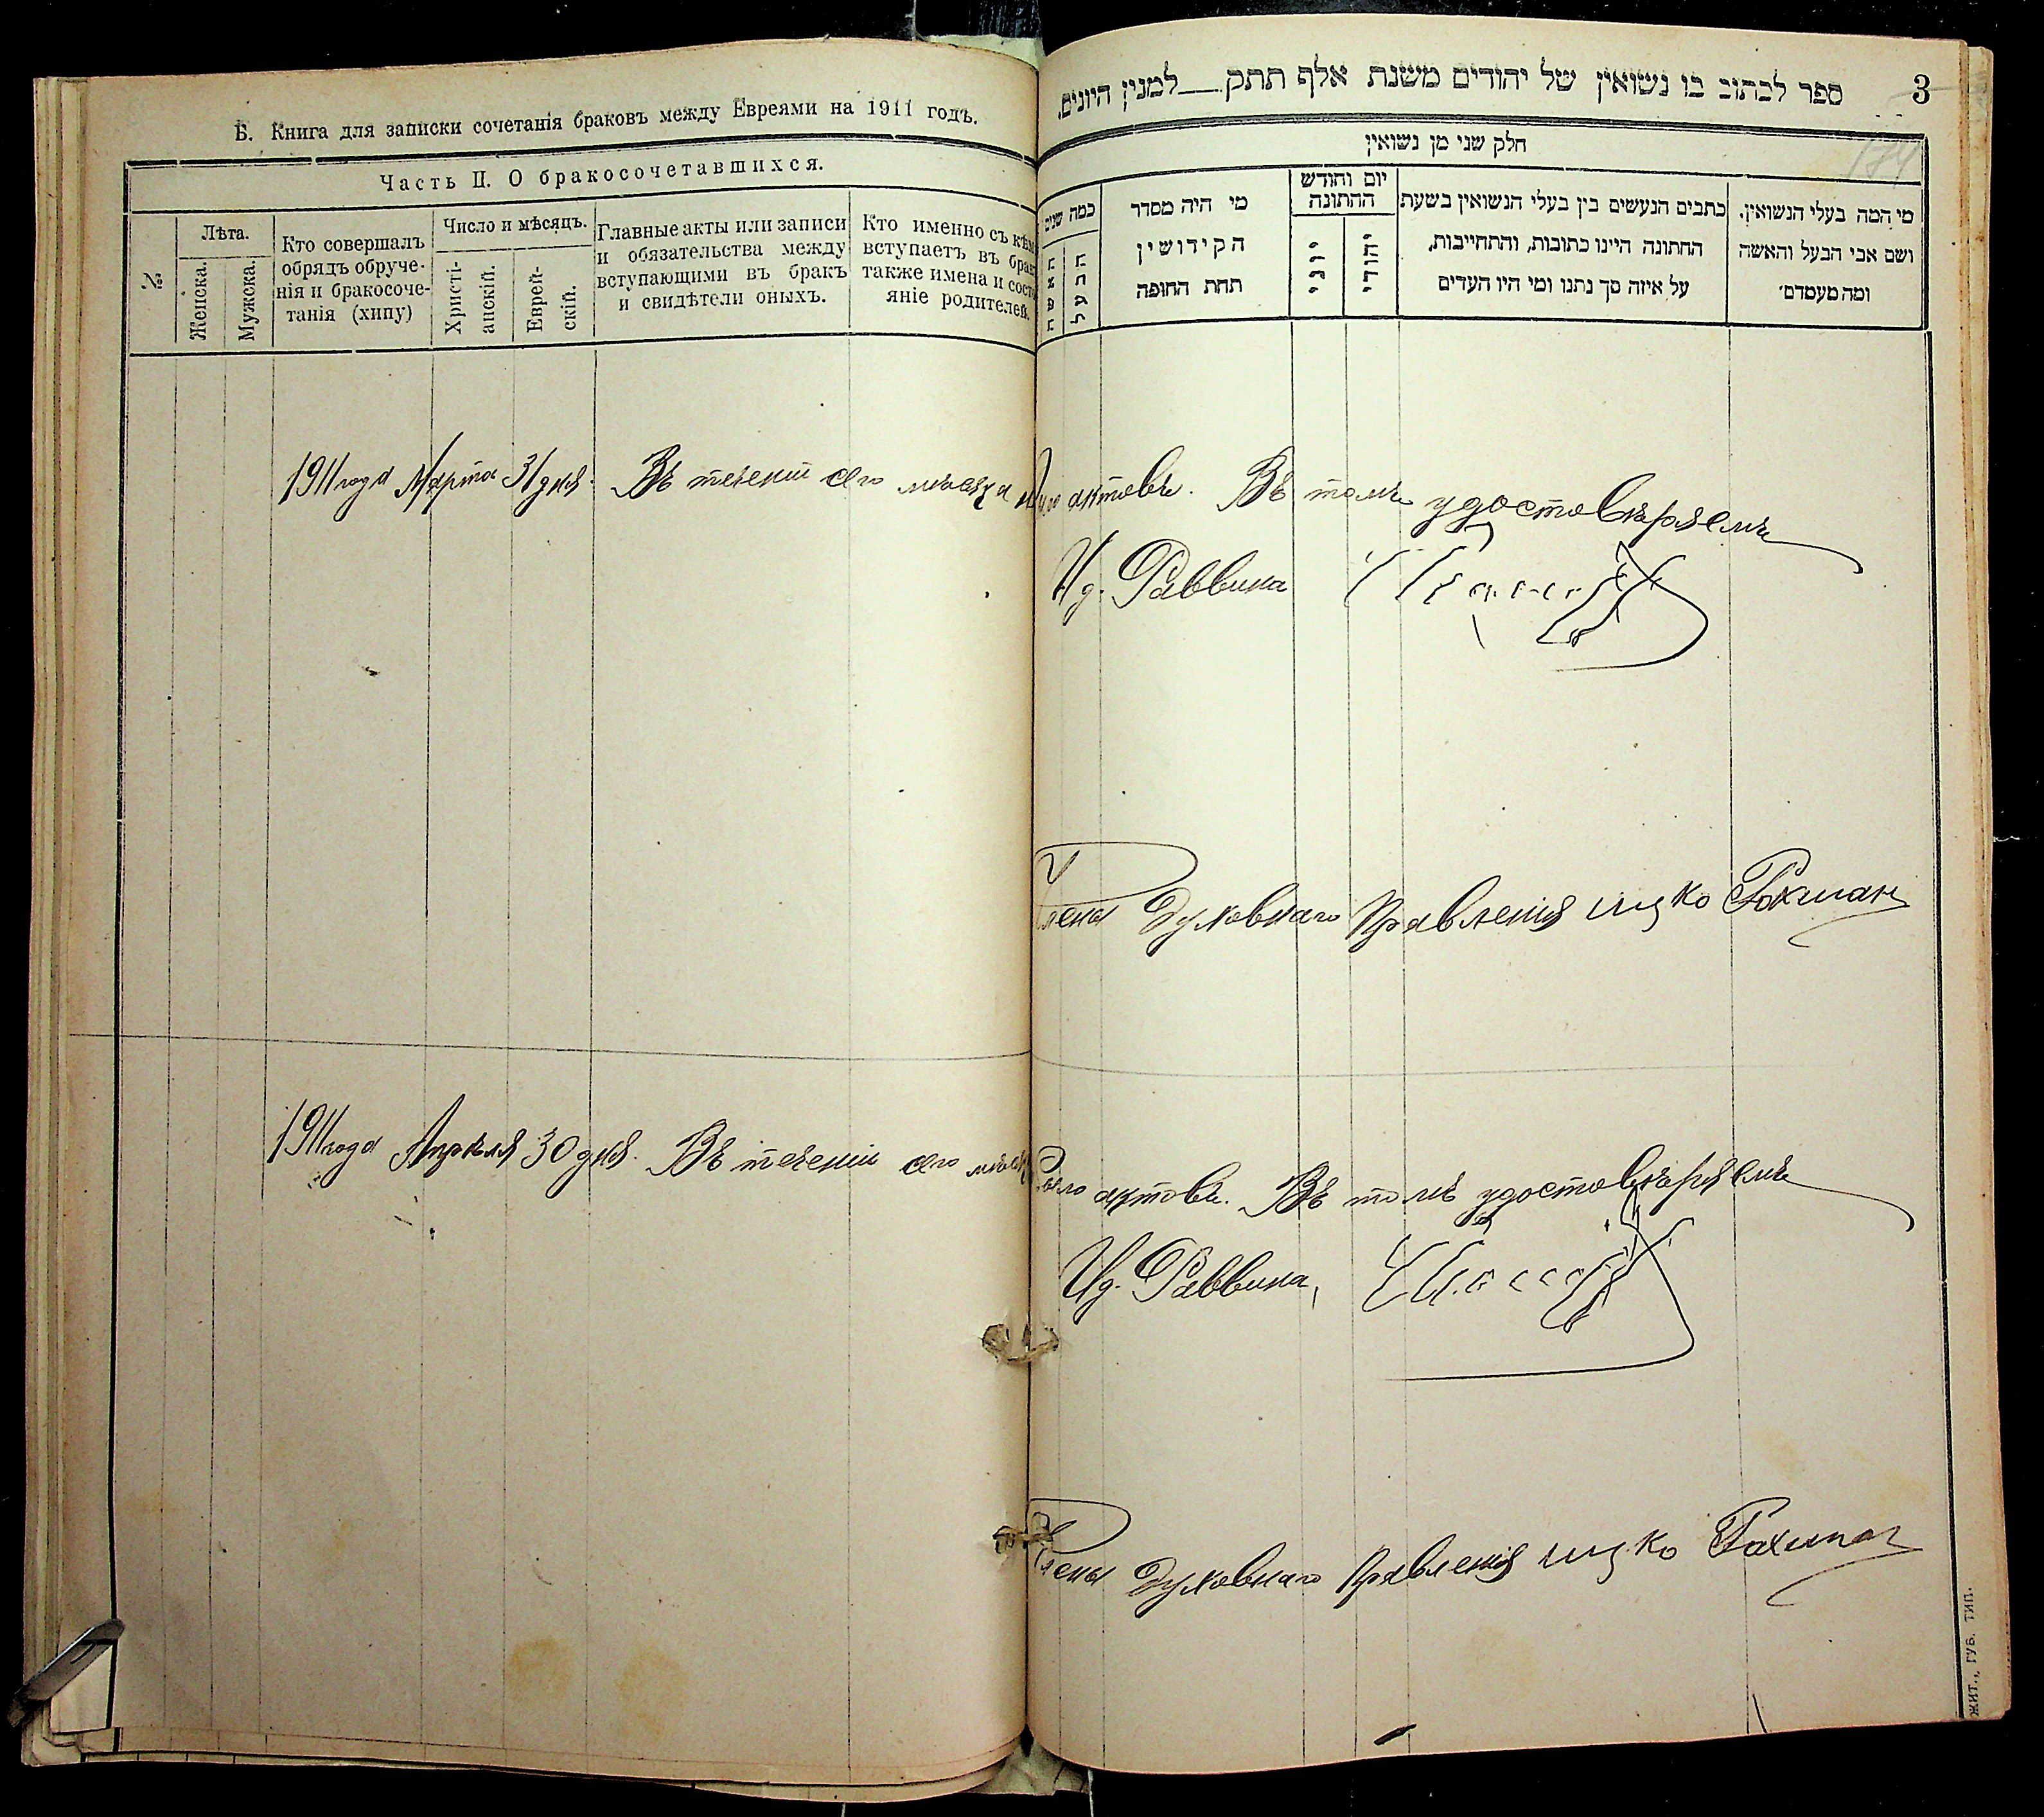 Б. Книга для записки сочетанія браковъ между Евреями на 1911 годъ.
Часть II. О бракосочетавшихся.
№
Лѣта.
Женска.
Мужска.
Кто совершалъ
обрядъ обруче-
нія и бракосоче-
танія (хипу)
Число и мѣсяцъ.
Христі-
анскій.
Еврей-
скій.
Главные акты или записи
и обязательства между
вступающими въ бракъ
и свидѣтели оныхъ.
Кто именно съ кѣмъ
вступаетъ въ бракъ
также имена и состо
яніе родителей.
1911 года Марта 31 дня. Въ теченіи сего мѣсяца
1911 года Апрѣля 30 дня. Въ теченіи сего
ספר לכתוב בו נשואין של יהודים משנת אלף תתק למנין היונים.
3
184
חלק שני מן נשואין
מי המה בעלי הנשואין.
ושם אבי הבעל והאשה
ומה מעמדם׳
כתבים הנעשים בין בעלי הנשואין בשעת
החתונה היינו כתובות, והתחייבות,
על איזה סך נתנו ומי היו העדים
יום וחודש
החתונה
יהודי
יוני
מי היה מסדר
הקידושין
תחת החופה
כמה שנים
הבעל
האשה
актовъ. Въ томъ удостовѣряемъ
И д. Раввина
Члены Духовнаго Правленія Ицко Гохман
было актовъ. Въ томъ удостовѣряемъ
И д. Раввина
Члены Духовнаго Правленія Ицко Гохман
ЖИТ., ГУБ. ТИП.